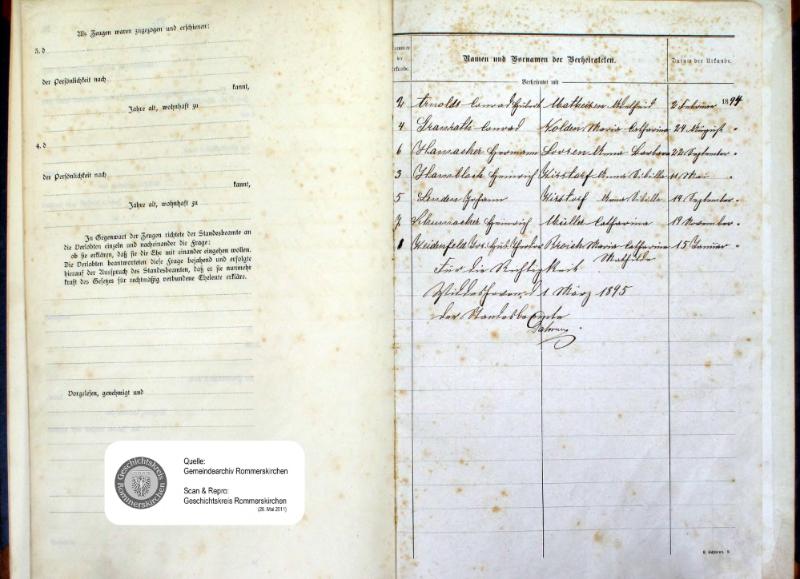 Als Zeugen waren zugezogen und erschienen:
3. d
der Persönlichkeit nach
kannt,
Jahre alt, wohnhaft zu
4. d
der Persönlichkeit nach
kannt,
Jahre alt, wohnhaft zu
In Gegenwart der Zeugen richtete der Standesbeamte an
die Verlobten einzeln und nacheinander die Frage:
ob sie erklären, daß sie die Ehe mit einander eingehen wollen.
Die Verlobten beantworteten diese Frage bejahend und erfolgte
hierauf der Ausspruch des Standesbeamten, daß er sie nunmehr
kraft des Gesetzes für rechtmäßig verbundene Eheleute erkläre.
Vorgelesen, genehmigt und
Quelle:
Gemeindearchiv Rommerskirchen
Scan & Repro:
Geschichtskreis Rommerskirchen
(28. Mai 2011)
Geschichtskreis
Rommerskirchen
der
Namen und Vornamen der Verheirateten.
Datum der Urkunde.
Verheiratet mit
2 Arnolds Conrad Hubert 2 Februar 1894
4 Granrath Conrad Nolden Maria Catharina 24 August "
6 Hamacher Hermann Anna Barbara 22 September "
3 Hamblock Heinrich Kirstorf Anna Sibilla 11 Mai "
5 Linden Johann Kirstorf Anna Sibilla 19 September "
7 Schumacher Heinrich Müller Catharina 19 November "
1 Weidenfeld Jos. Broich Maria Catharina 15 Januar "
Mathilde
Für die Richtigkeit
1 März 1895
der Standesbeamte